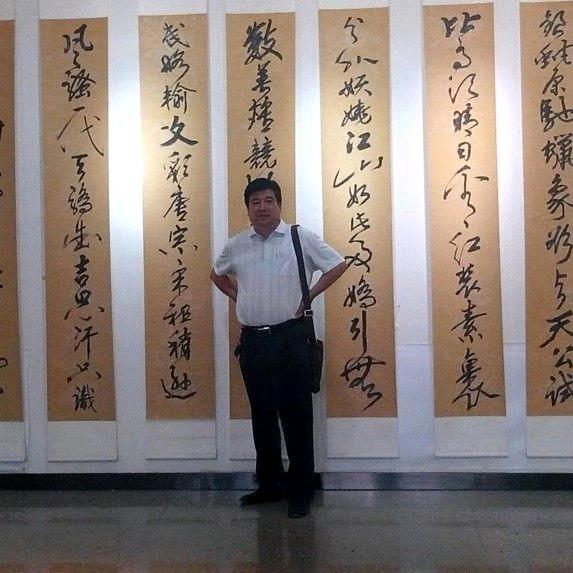 蛇原馳蠟象欲与天公試
比高須晴日看红裝素裹
分外妖嬈江山如此多嬌引無
數英雄競
略輸文彩唐宗宋祖稍遜
風騷一代天驕成吉思汗只識